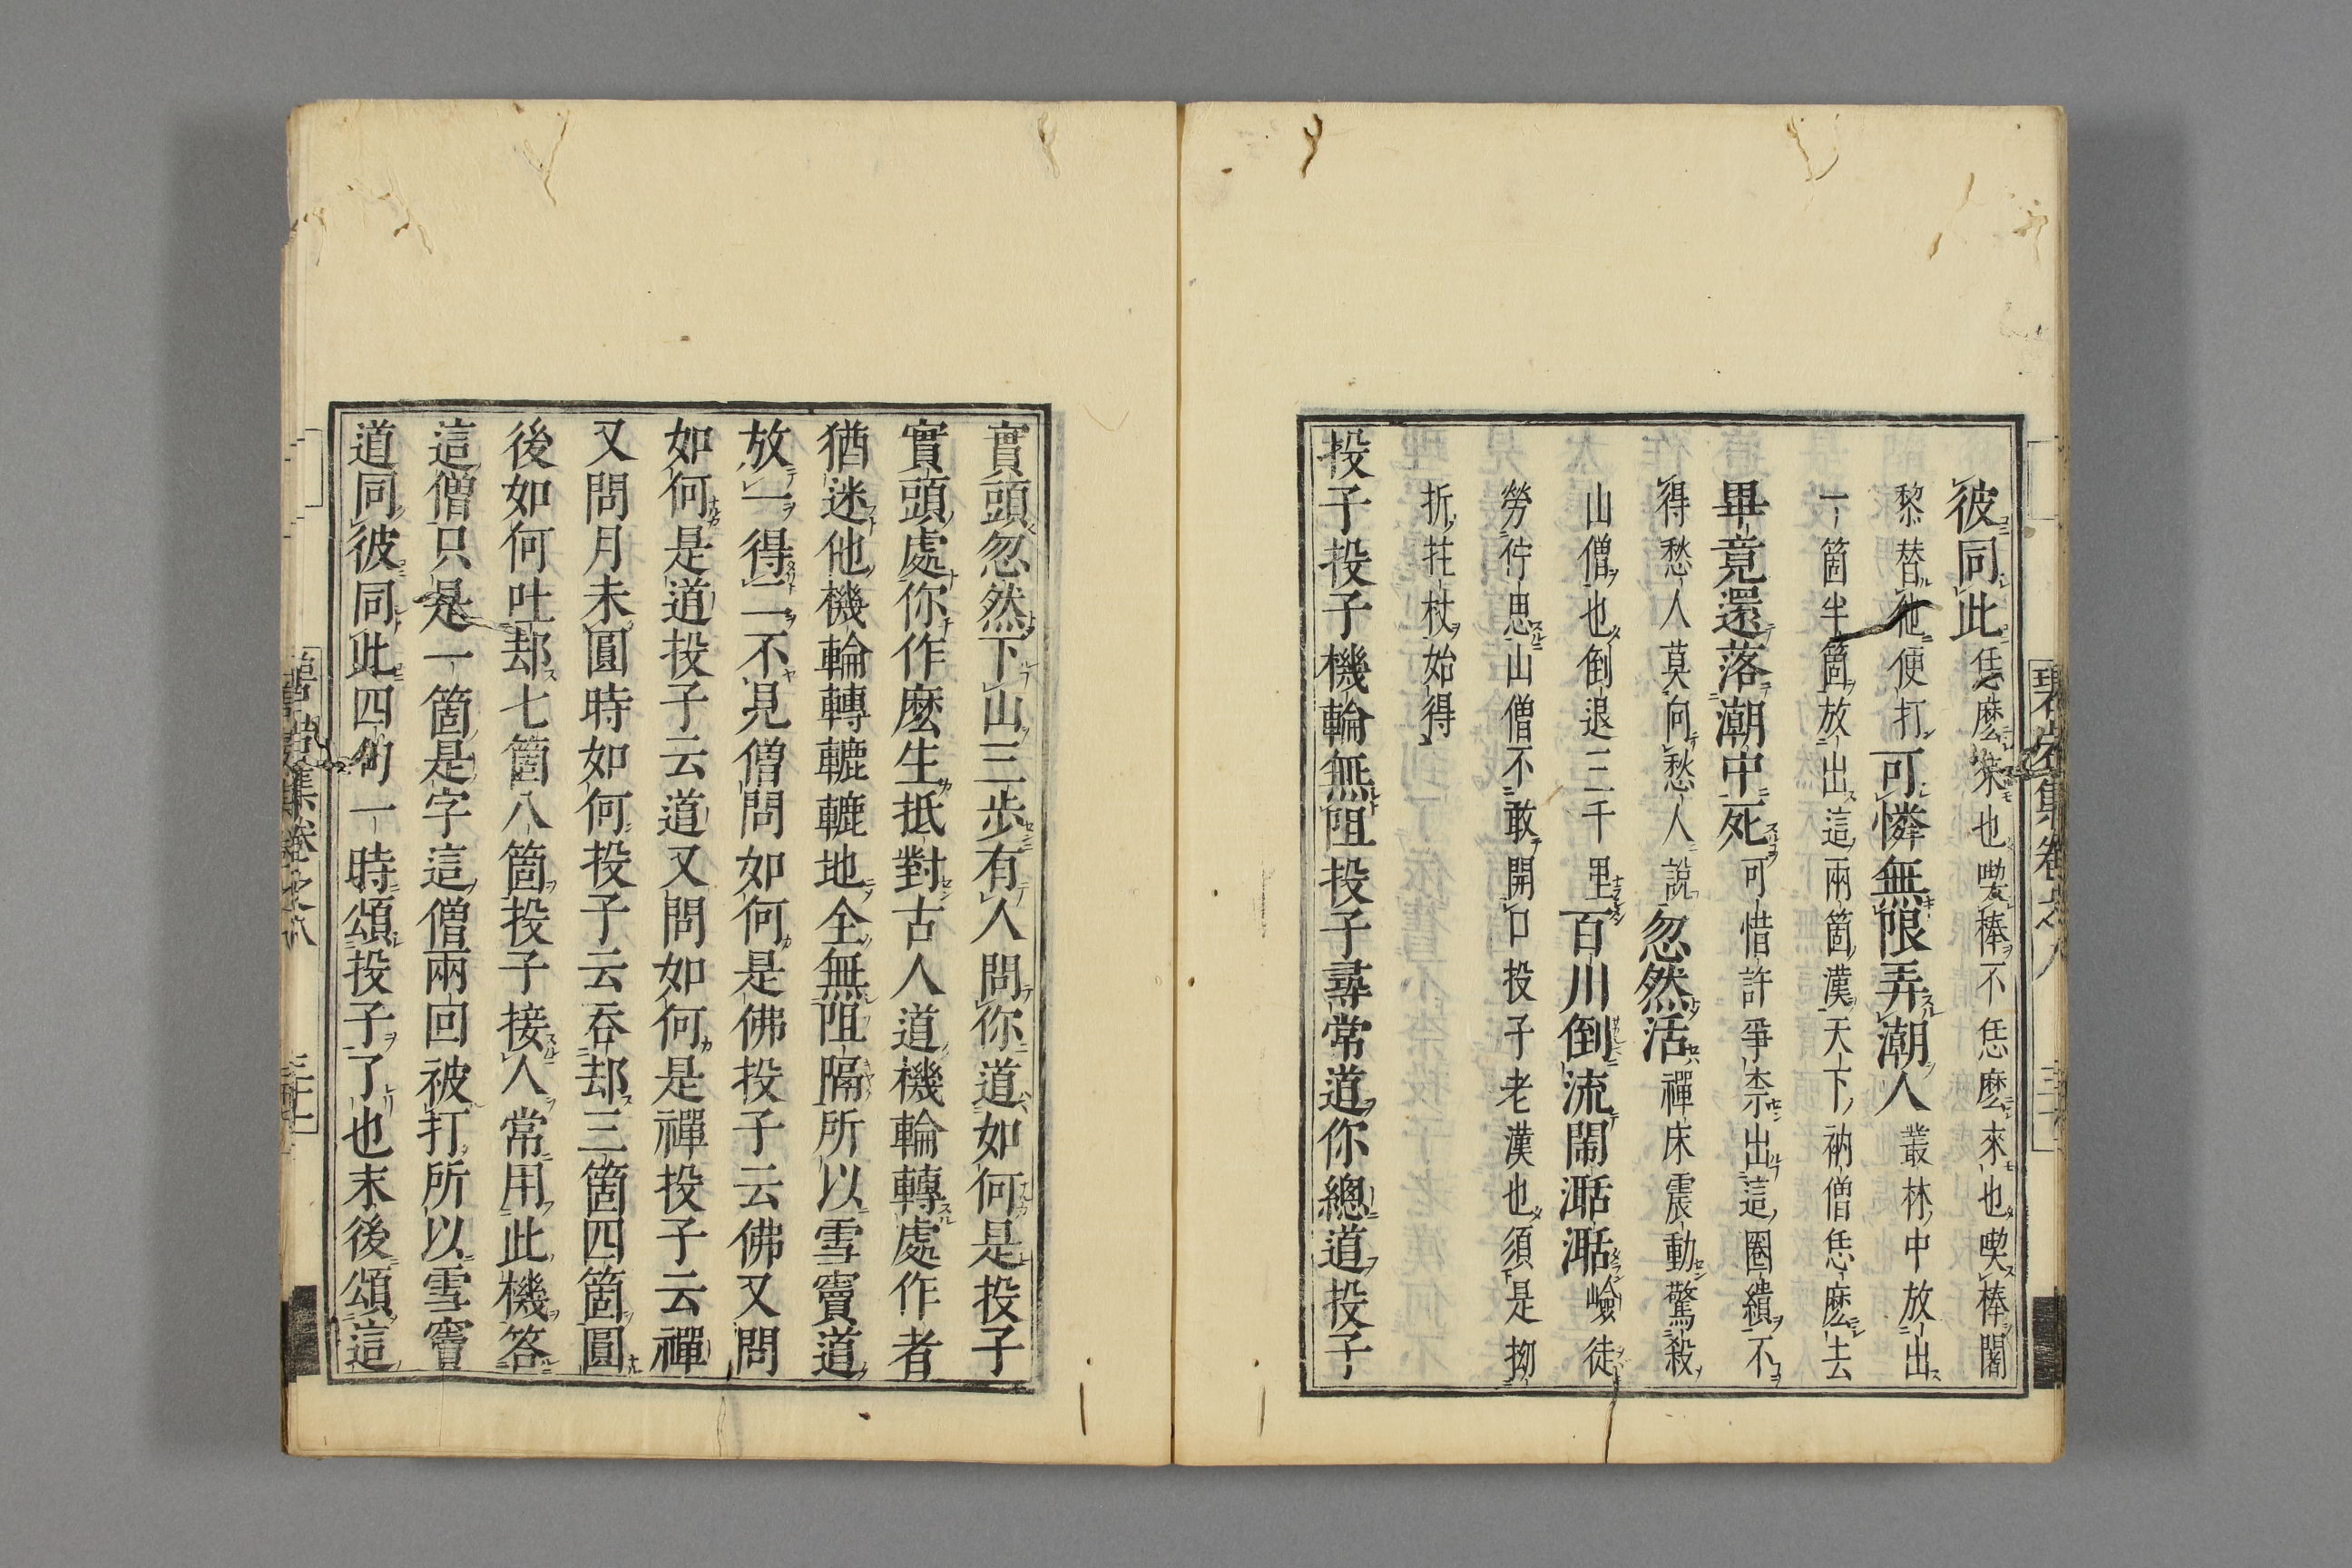 彼同此恁麼來也喫棒不恁麼來也喫棒闍
黎替他便打可憐無限弄潮人叢林中放出
一箇半箇放出這兩箇漢天下衲僧恁麼去
畢竟還落潮中死可惜許爭柰出這圈繢不
得愁人莫向愁人說忽然活禪床震動驚殺
山僧也倒退三千里百川倒流閙湉湉嶮徒
勞佇思山僧不敢開口投子老漢也須是拗
折拄杖始得
投子投子機輪無阻投子尋常道你總道投子
實頭忽然下山三步有人問你道如何是投子
實頭處你作麼生抵對古人道機輪轉處作者
猶迷他機輪轉轆轆地全無阻隔所以雪竇道
放一得二不見僧問如何是佛投子云佛又問
如何是道投子云道又問如何是禪投子云禪
又問月未圓時如何投子云吞却三箇四箇圓
後如何吐却七箇八箇投子接人常用此機答
這僧只是一箇是字這僧兩回被打所以雪竇
道同彼同此四句一時頌投子了也末後頌這